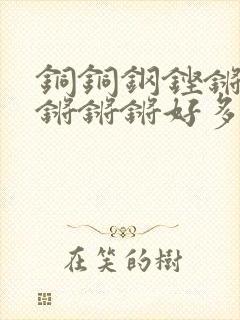 銅銅鋼鏗鏘
鏘鏘鏘好多
在笑的樹